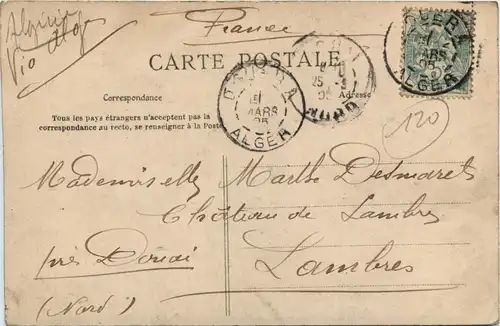 Algérie
via Alger
France
CARTE POSTALE
Correspondance
Adresse
Tous les pays étrangers n'acceptent pas la
correspondance au recto, se renseigner à la Poste
ALGER
MARS
05
ALGER
MARS
05
NORD
120
Mademoiselle Marthe Desmarets
Château de Lambres
près Douai Lambres
(Nord)